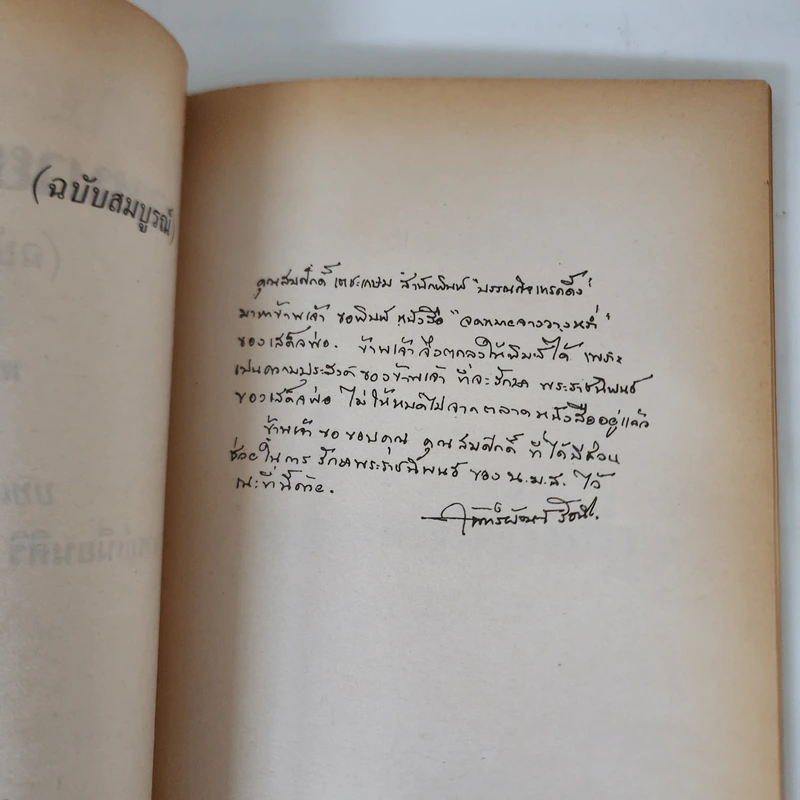 (ฉบับสมบูรณ์)
คุณสมศักดิ์ เตชะเกษม สำนักพิมพ์ "บรรณกิจเทรดดิ้ง"
มาหาข้าพเจ้า ขอพิมพ์ หนังสือ "จดหมายจางวางหร่ำ"
ของเสด็จพ่อ. ข้าพเจ้าจึงตกลงให้พิมพ์ได้ เพราะ
เป็นความประสงค์ของข้าพเจ้า ที่จะรักษา พระราชนิพนธ์
ของเสด็จพ่อ ไม่ให้หมดไปจากตลาดหนังสืออยู่แล้ว
ข้าพเจ้า ขอขอบคุณ คุณสมศักดิ์ ที่ได้มีส่วน
ช่วยในการ รักษาพระราชนิพนธ์ ของ น.ม.ส. ไว้
ณะที่นี้ด้วย.